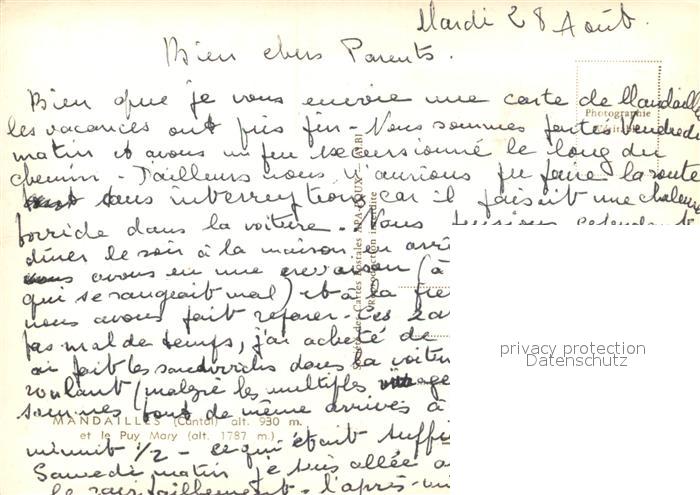 Mardi 28 Août.
Bien chers Parents.
Bien que je vous envoie une carte de Mandailles
les vacances ont pris fin - Nous sommes partis vendredi
matin et avons un peu excursionné le long du
chemin - D'ailleurs nous n'aurions pu faire la route
sans interruptions car il faisait une chaleur
torride dans la voiture - Nous pensions cependant
dîner le soir à la maison, en
avons eu une crevaison (à
qui se rangeait mal) et à la
nous avons fait réparer - Ces
pas mal de temps, j'ai acheté de
ai fait les sandwichs dans la
roulant (malgré les multiples
sommes tout de même arrivés à
minuit 1/2 - ce qui était
Samedi matin je suis allée
le ravitaillement - l'après-
Photographie
Société des Cartes Postales APA-POUX - ALBI
Reproduction interdite
MANDAILLES (Cantal) alt. 930 m.
et le Puy Mary (alt. 1787 m.)
privacy protection
Datenschutz